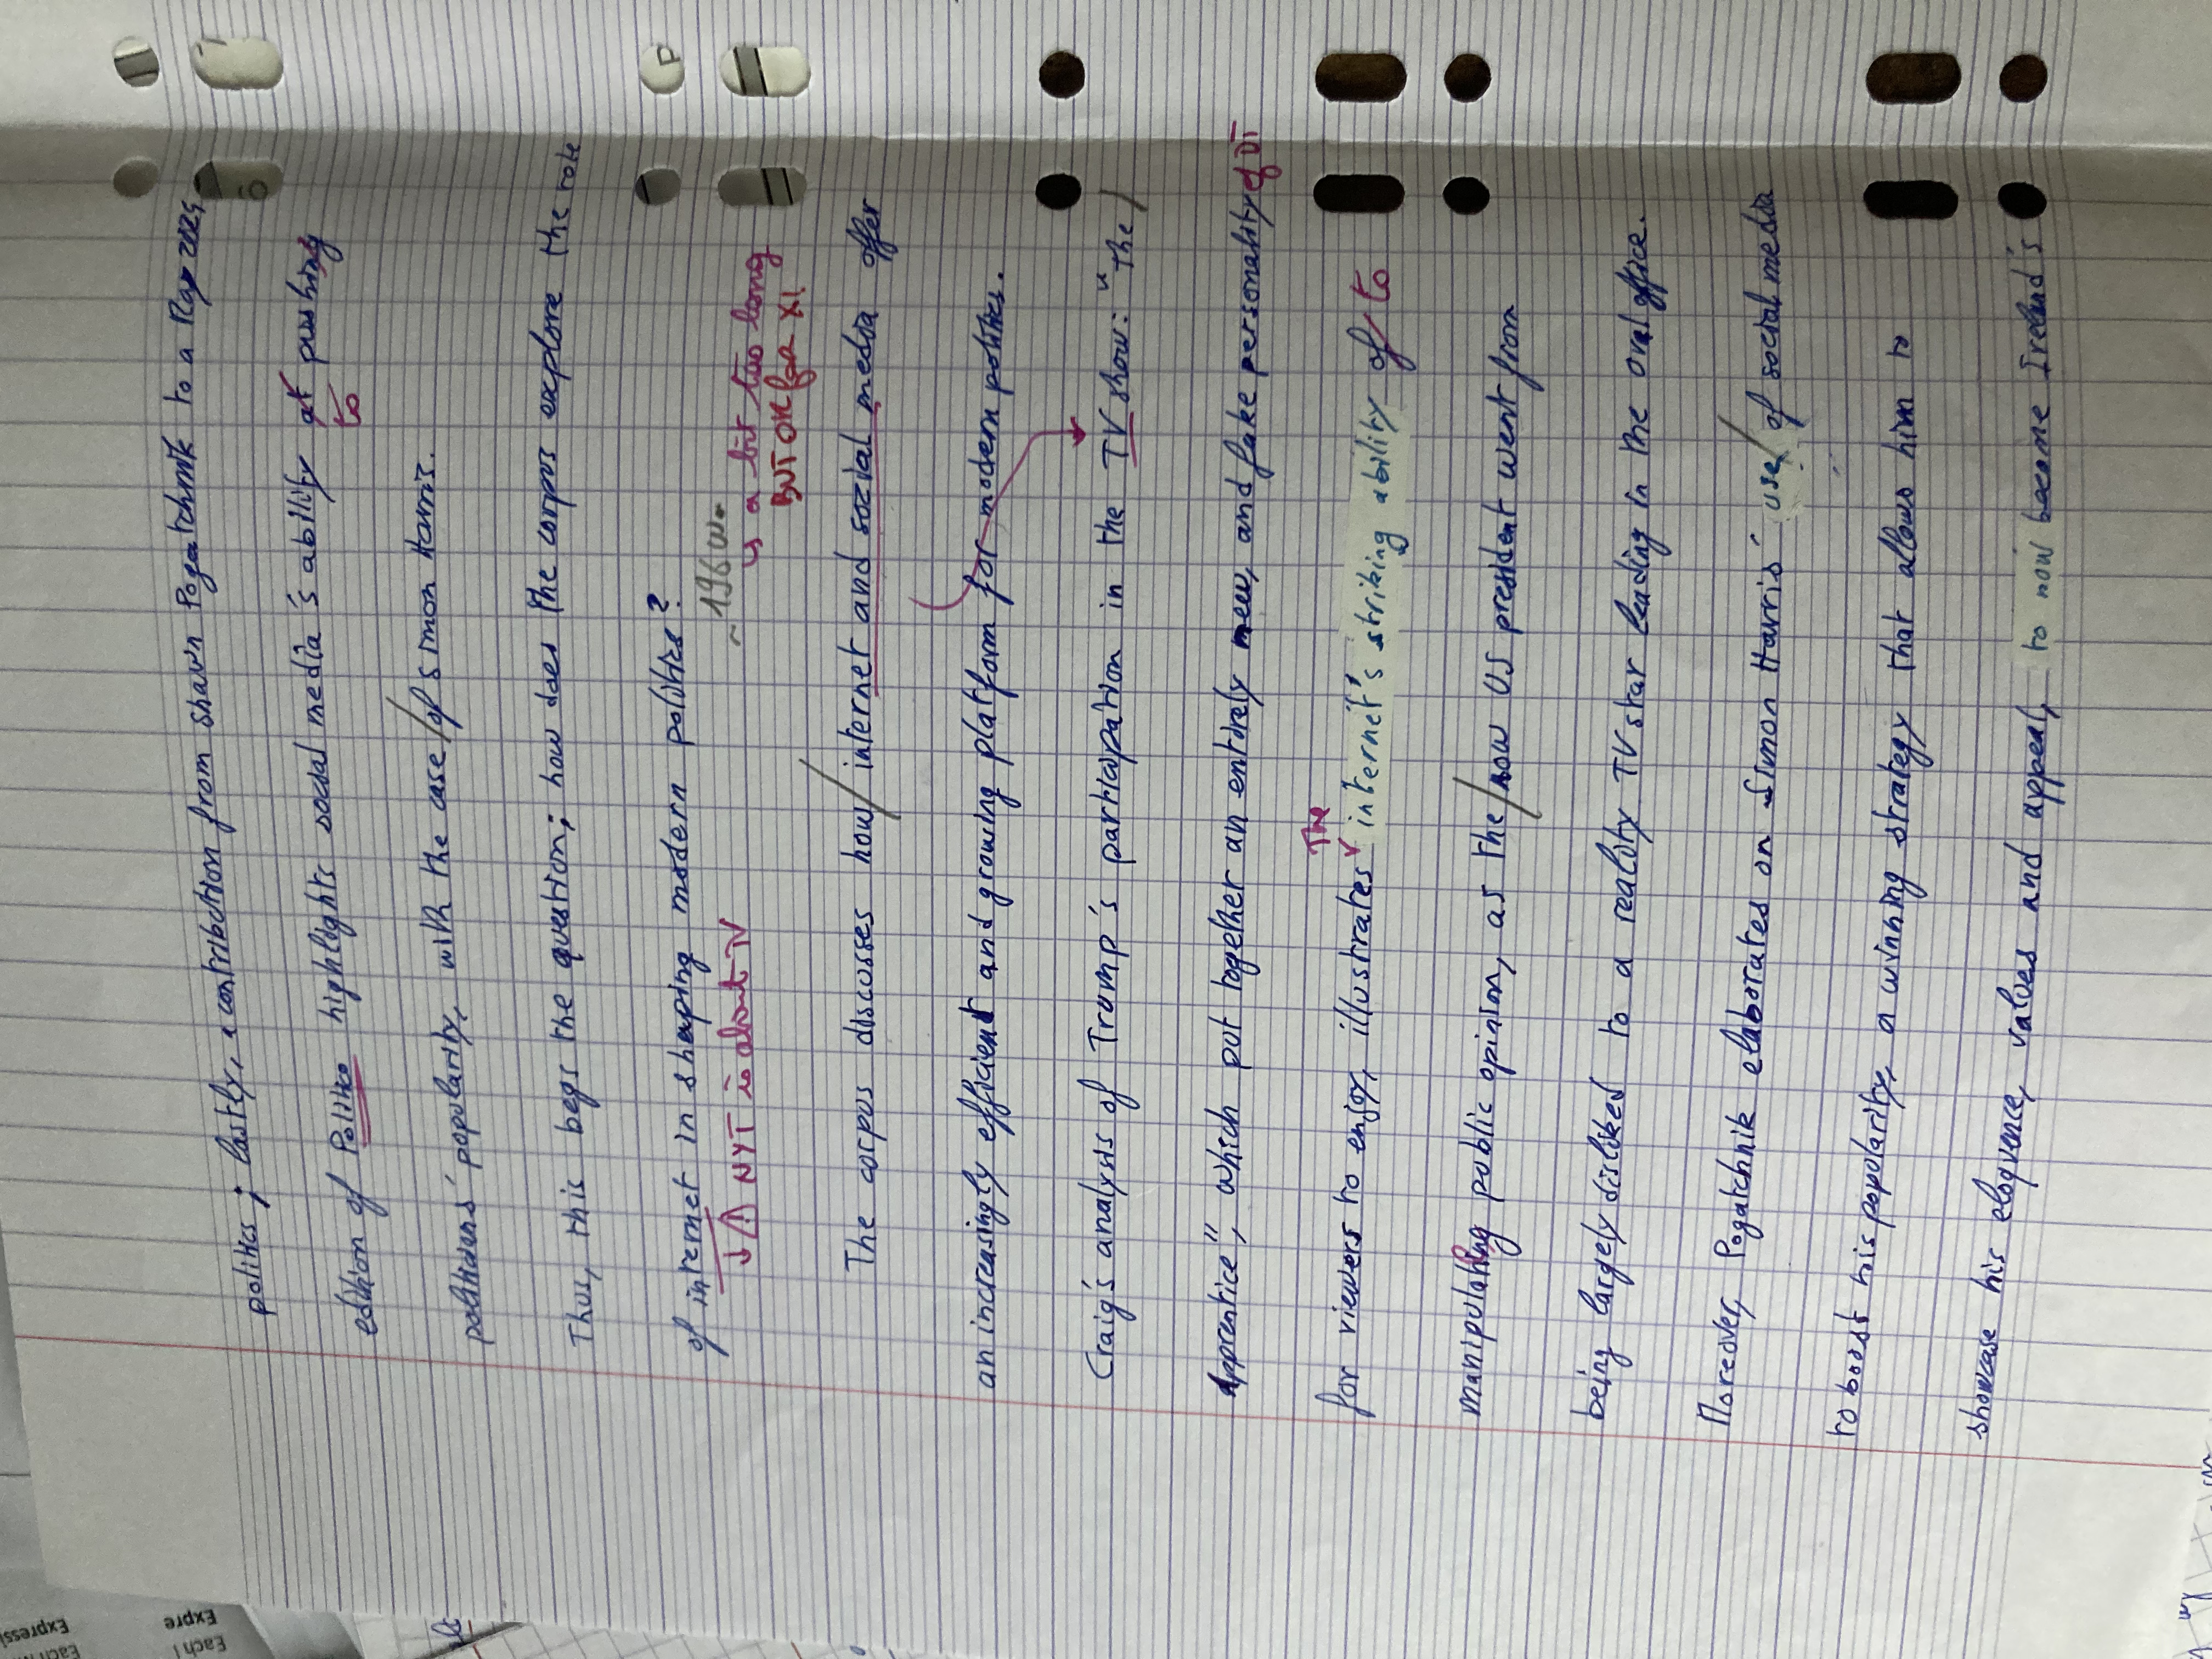 politics ; lastly, a contribution from Shawn Pogatchnik to a May 2024
edition of Politico highlights social media's ability at pushing
to
politicians' popularity, with the case / of Simon Harris.
Thus, this begs the question; how does the corpus explore the role
of internet in shaping modern politics?
~196w.
↓ ⚠ NYT is about TV
↳ a bit too long
BUT OK for X1
The corpus discusses how / internet and social media offer
an increasingly efficient and growing platform for modern politics.
Craig's analysis of Trump's participation in the TV show: "The /
Apprentice", which put together an entirely new, and fake personality of DT
The
for viewers to enjoy, illustrates internet's striking ability of to
manipulating public opinion, as the / now US president went from
being largely disliked to a reality TV star leading in the oval office.
Moreover, Pogatchnik elaborates on Simon Harris' use / of social media
to boost his popularity, a winning strategy that allows him to
showcase his eloquence, values and appeal, to now become Ireland's
Expressi
Expre
Each
Each